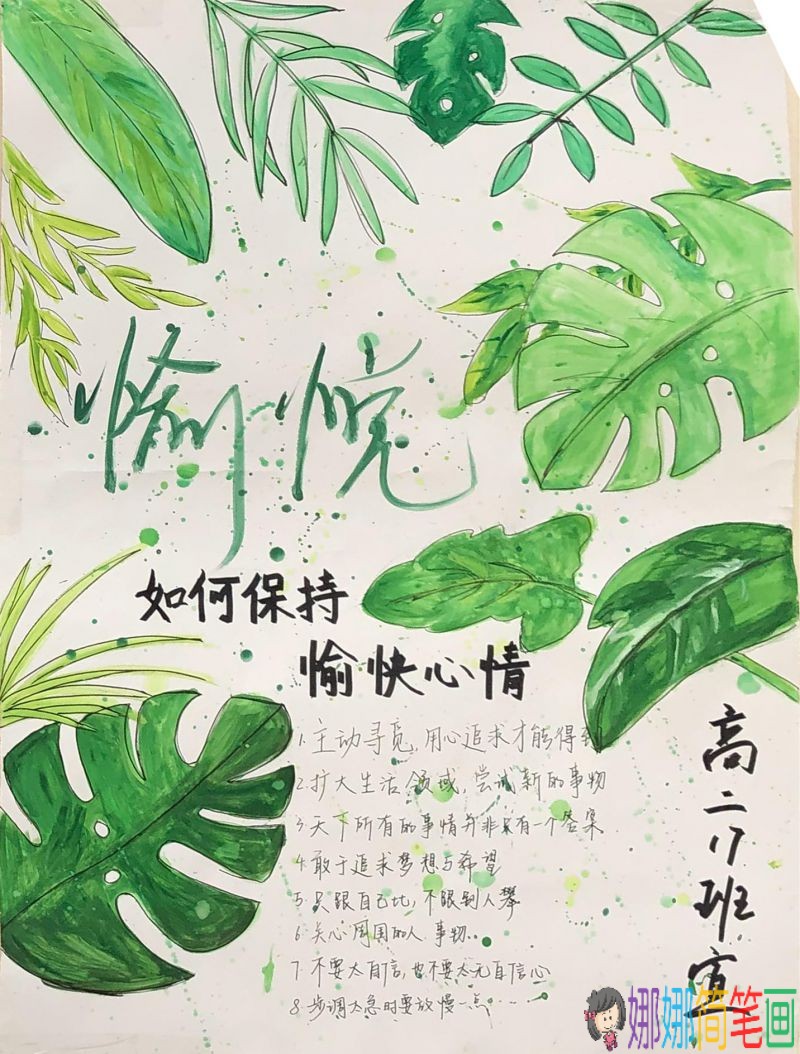 愉悦
如何保持
愉快心情
1.主动寻觅,用心追求才能得到
2.扩大生活领域,尝试新的事物
3.天下所有的事情并非只有一个答案
4.敢于追求梦想与希望
5.只跟自己比,不跟别人攀
6.关心周围的人 事物..
7.不要太自信,也不要太无自信心
8.步调太急时要放慢一点······
高二17班宣
娜娜简笔画